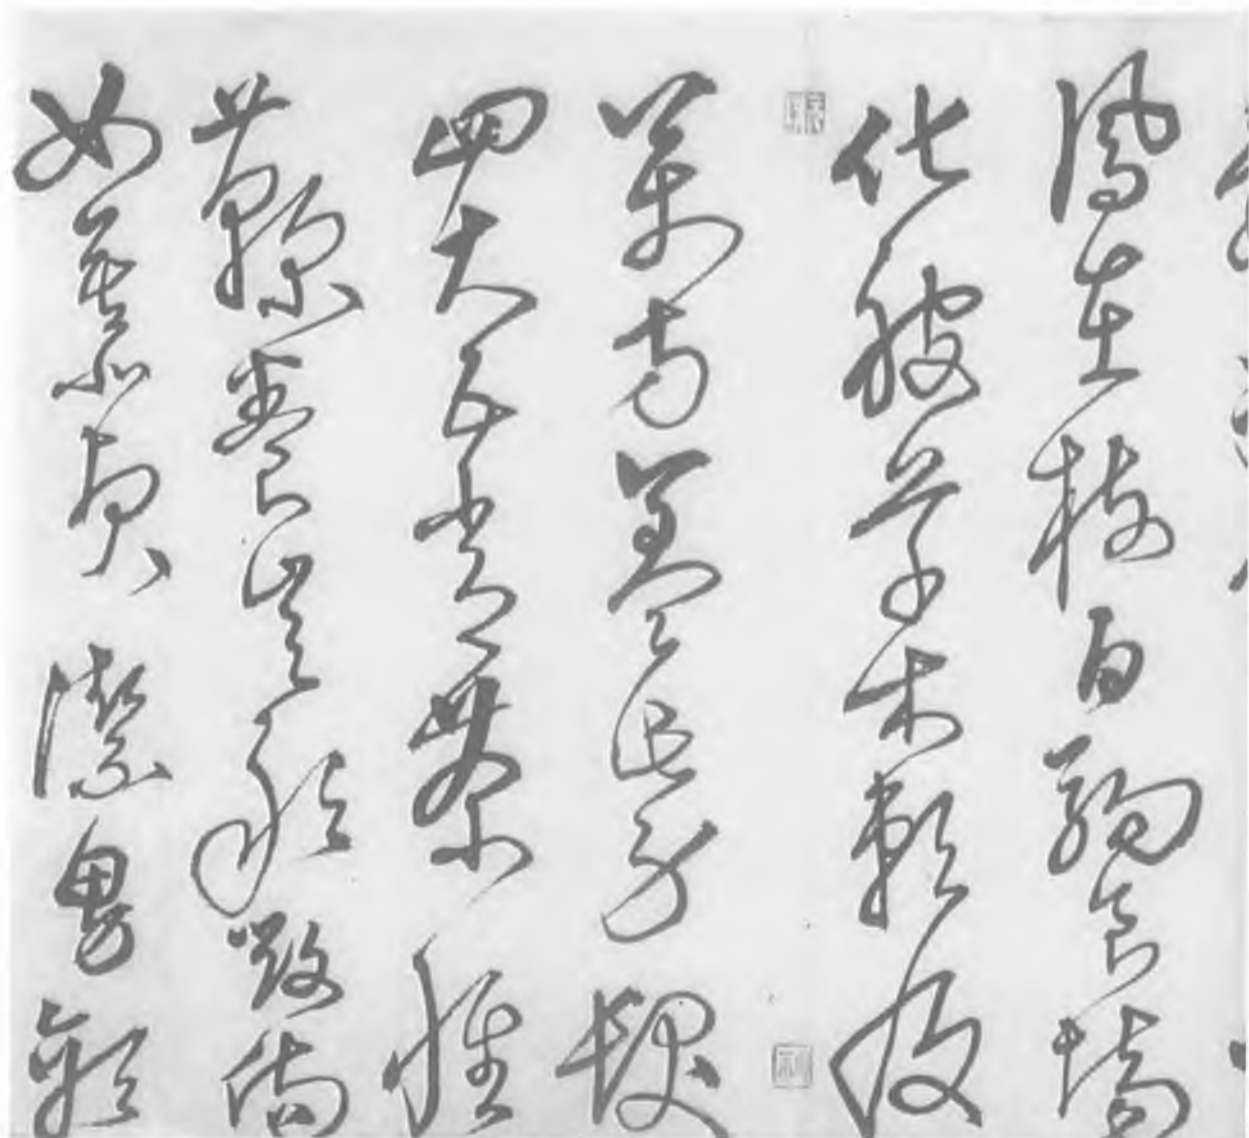 鳳在樹白駒食場
化被草木賴及
萬方蓋此身髮
四大五常恭惟
鞠養豈敢毀傷
女慕貞潔男效